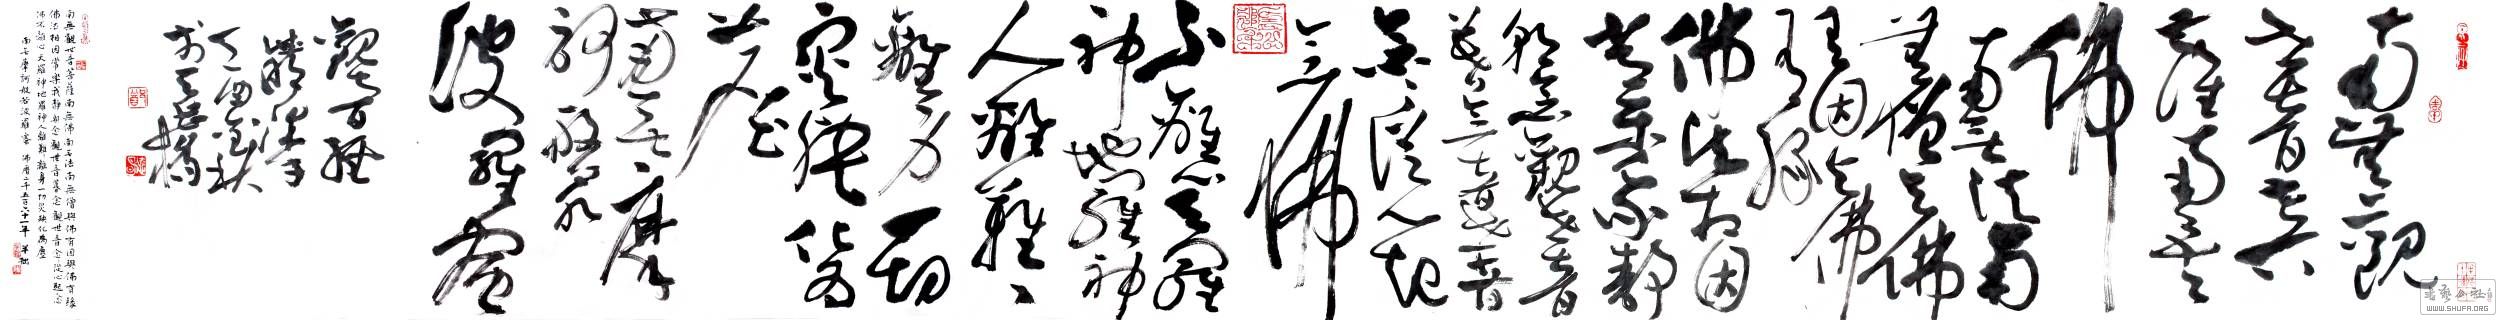 南無觀
世音菩
薩南無
佛
南無法南
無僧與佛
有因與佛
有緣
佛法相因
常樂我靜
朝念觀世音
暮念觀世音
念念從心起
念佛
不離心天羅
神地羅神
人離難難
離身一切
災殃化為
塵
南無摩
訶般若
波羅蜜
丁酉秋
南無觀世音菩薩南無佛南無法南無僧與佛有因與佛有緣
佛法相因常樂我靜朝念觀世音暮念觀世音念念從心起念
佛不離心天羅神地羅神人離難難離身一切災殃化為塵
南無摩訶般若波羅蜜 佛曆二千五百六十一年
書藝公社
WWW.SHUFA.ORG